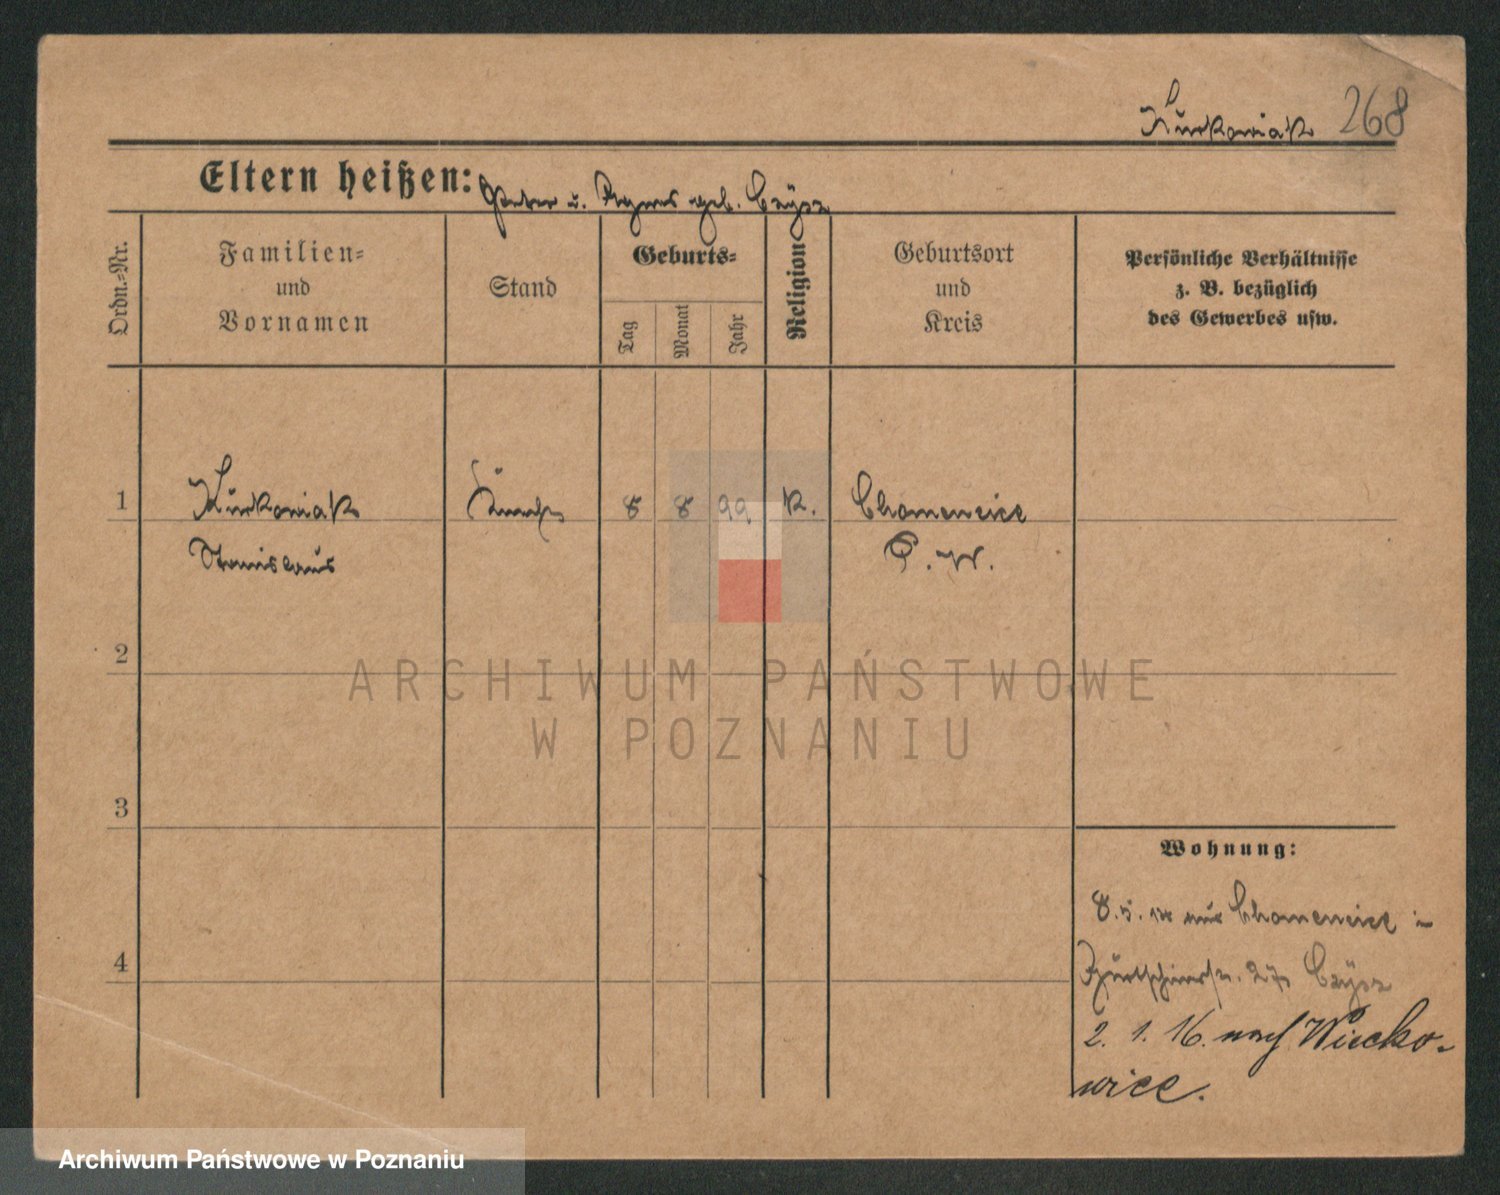 Kurkowiak 268
Eltern heißen: Peter u. Agnes geb. Cayza
Ordn.-Nr.
Familien-
und
Vornamen
Stand
Geburts-
Tag
Monat
Jahr
Religion
Geburtsort
und
Kreis
Persönliche Verhältnisse
z. B. bezüglich
des Gewerbes usw.
1 Kurkowiak 8 8 99 K. Chomencice
Stanislaus P. W.
2
ARCHIWUM PAŃSTWOWE
W POZNANIU
3
Wohnung:
8. 5. aus Chomencice
4
27
2. 1. 16. nach Wiecko-
wice.
Archiwum Państwowe w Poznaniu